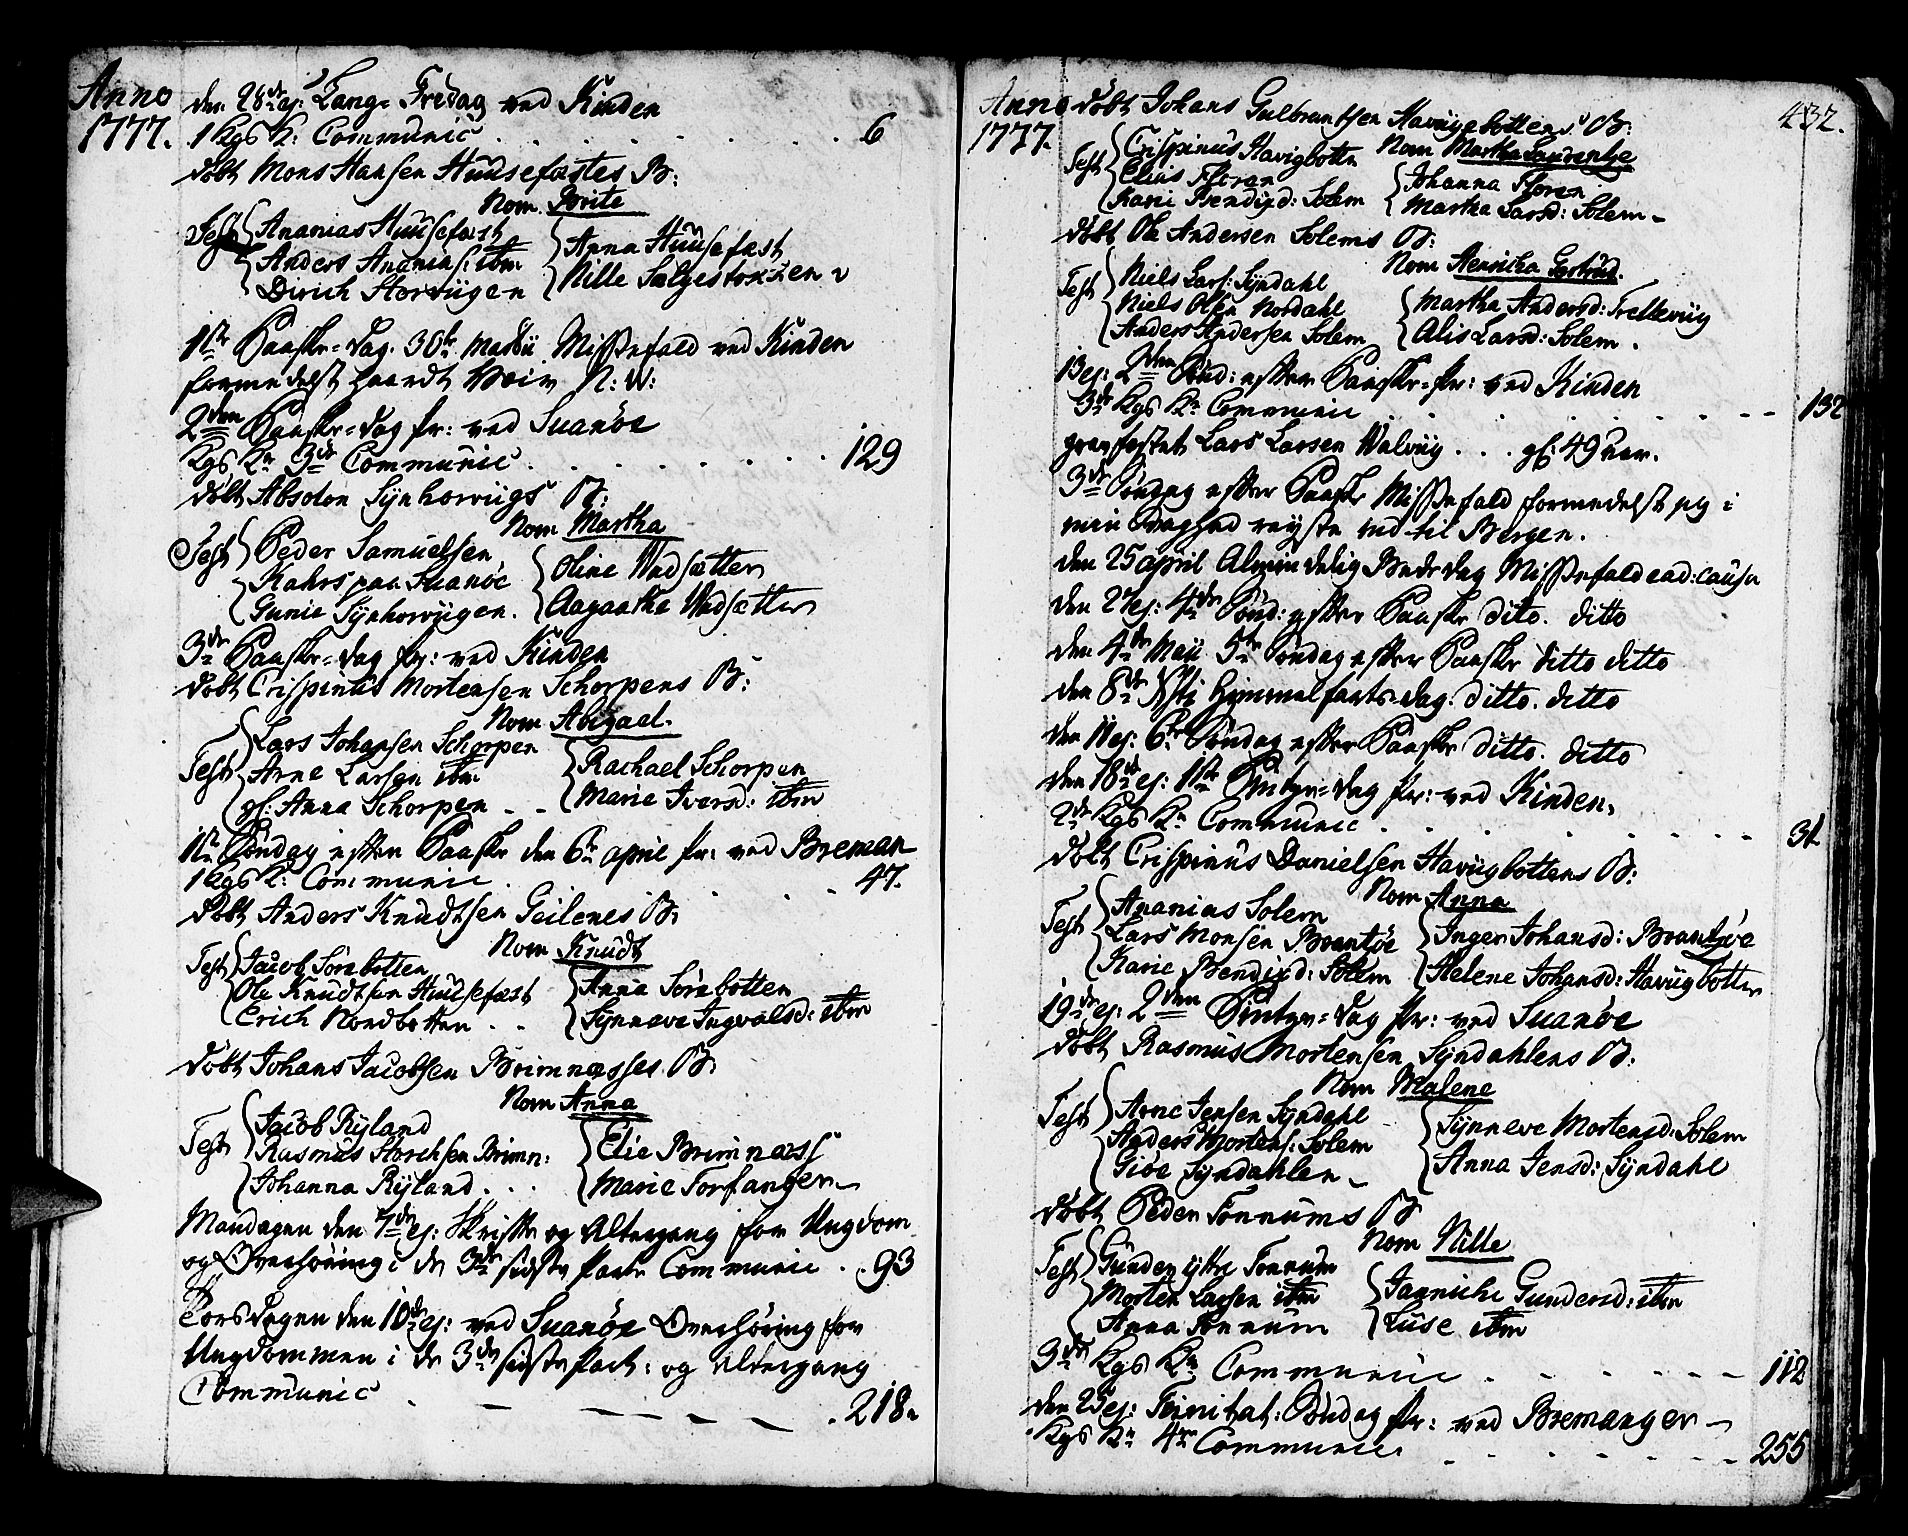 Anno
1777.
den 28de ej: Lang= Fredag ved Kinden
1 Kgs K: Communic . . . . . . 6
döbt Mons Hansen Huusefæstes B:
Nom. Brite
Test Ananias Huusefæst
Anders Ananias: ibm
Dirich Storvügen
Anna Huusefæst
Nille Salgestoxxen
1ste Paaske=dag. 30te Martii Missefald ved Kinden
formedelst haardt Veir N: W:
2den Paaske=dag pr: ved Svanöe
Kgs K: 3de Communic . . . . . . 129
döbt Absolon Synhorvügs B:
Nom Martha
Test Peder Samuelsen
Kahrs paa Svanöe
Gunie Synhorvügen.
Oline Wedsætter
Aagaathe Wedsætter
3de Paaske=dag pr: ved Kinden
döbt Crispinus Mortensen Schorpens B:
Nom Abigael.
Test Lars Johansen Schorpen
Arne Larsen ibm
gl: Anna Schorpen . .
Rachael Schorpen
Marie Iversd: ibm
1te Söndag efter Paaske den 6te april pr: ved Breman
1 Kgs K: Communic . . . . 47.
döbt Anders Knudtsen Geilenes B:
Nom Knudt
Test Jacob Sörebotten
Ole Knudtsen Huusefæst
Erich Nordbotten . .
Anna Sörebotten
Synneve Ingvalsd: ibm
döbt Johans Jacobsen Brimnæsses B:
Nom Anna
Test Jacob Ryland
Rasmus Storchsen Brimn:
Johanna Ryland . . .
Elie Brimnæss
Marie Torfanger
Mandagen den 7de ej: Skrifte og Altergang for Ungdom
og Overhöring i de 3de sidste Parte Communic . . 93
Torsdagen den 10de ej: ved Svanöe Overhöring for
Ungdommen i de 3de sidste Part: og Altergang
Communic . . 218.
Anno
1777.
432.
döbt Johans Gulbrantsen Havügebottens B:
Nom Martha
Test Crispinus Havigbotten
Elias Floren
Karie Bendixd: Solem
Johanna Floren
Martha Larsd: Solem
döbt Ole Andersen Solems B:
Nom Henricha Gertrud.
Test Niels Lars: Syndahl
Niels Olsen Nordahl
Anders Andersen Solem
Martha Andersd: Trellevüg
Alis Larsd: Solem.
13 ej: 2den Sönd: efter Paaske pr: ved Kinden
3de Kgs K: Communic . . . . 132
græsfæstet Lars Larsen Walvüg . . . gl: 49 aar.
3de Söndag efter Paaske Missefald formedelst jeg i
min Svaghed reyste ind til Bergen.
den 25 april Almindelig Bededag Missefald ead: causa
den 27 ej: 4de Sönd: efter Paaske dito. ditto
den 4de Maii 5te Söndag efter Paaske ditto ditto
den 8de Xsti Himmelfarts=dag. ditto. ditto
den 11 ej: 6te Söndag efter Paaske ditto. ditto
den 18de ej: 1ste Pintze=dag pr: ved Kinden,
2de Kgs K: Communic . . . . 31
döbt Crispinus Danielsen Havügbottens B:
Nom Anna
Test Ananias Solem
Lars Monsen Brantöe
Karie Bendixd: Solem
Inger Johansd: Brantöe
Helene Johansd: Havügbotten
19de ej: 2den Pintze=dag pr: ved Svanöe
döbt Rasmus Mortensen Syndahlens B:
Nom Malene
Test Arne Jensen Syndahl
Anders Mortens: Solem
Giöe Syndahlen
Synneve Mortensd: Solem
Anna Jensd: Syndahl
döbt Peder Tonnums B:
Nom Nille
Test Gunder yttre Tonnum
Morten Larsen ibm
Anna Tonnum
Jannicke Gundersd: ibm
Luse ibm
3de Kgs K: Communic . . . . 112
den 25 ej: Trinitat: Söndag pr: ved Bremanger
Kgs K: 4re Communic. . . . . 255